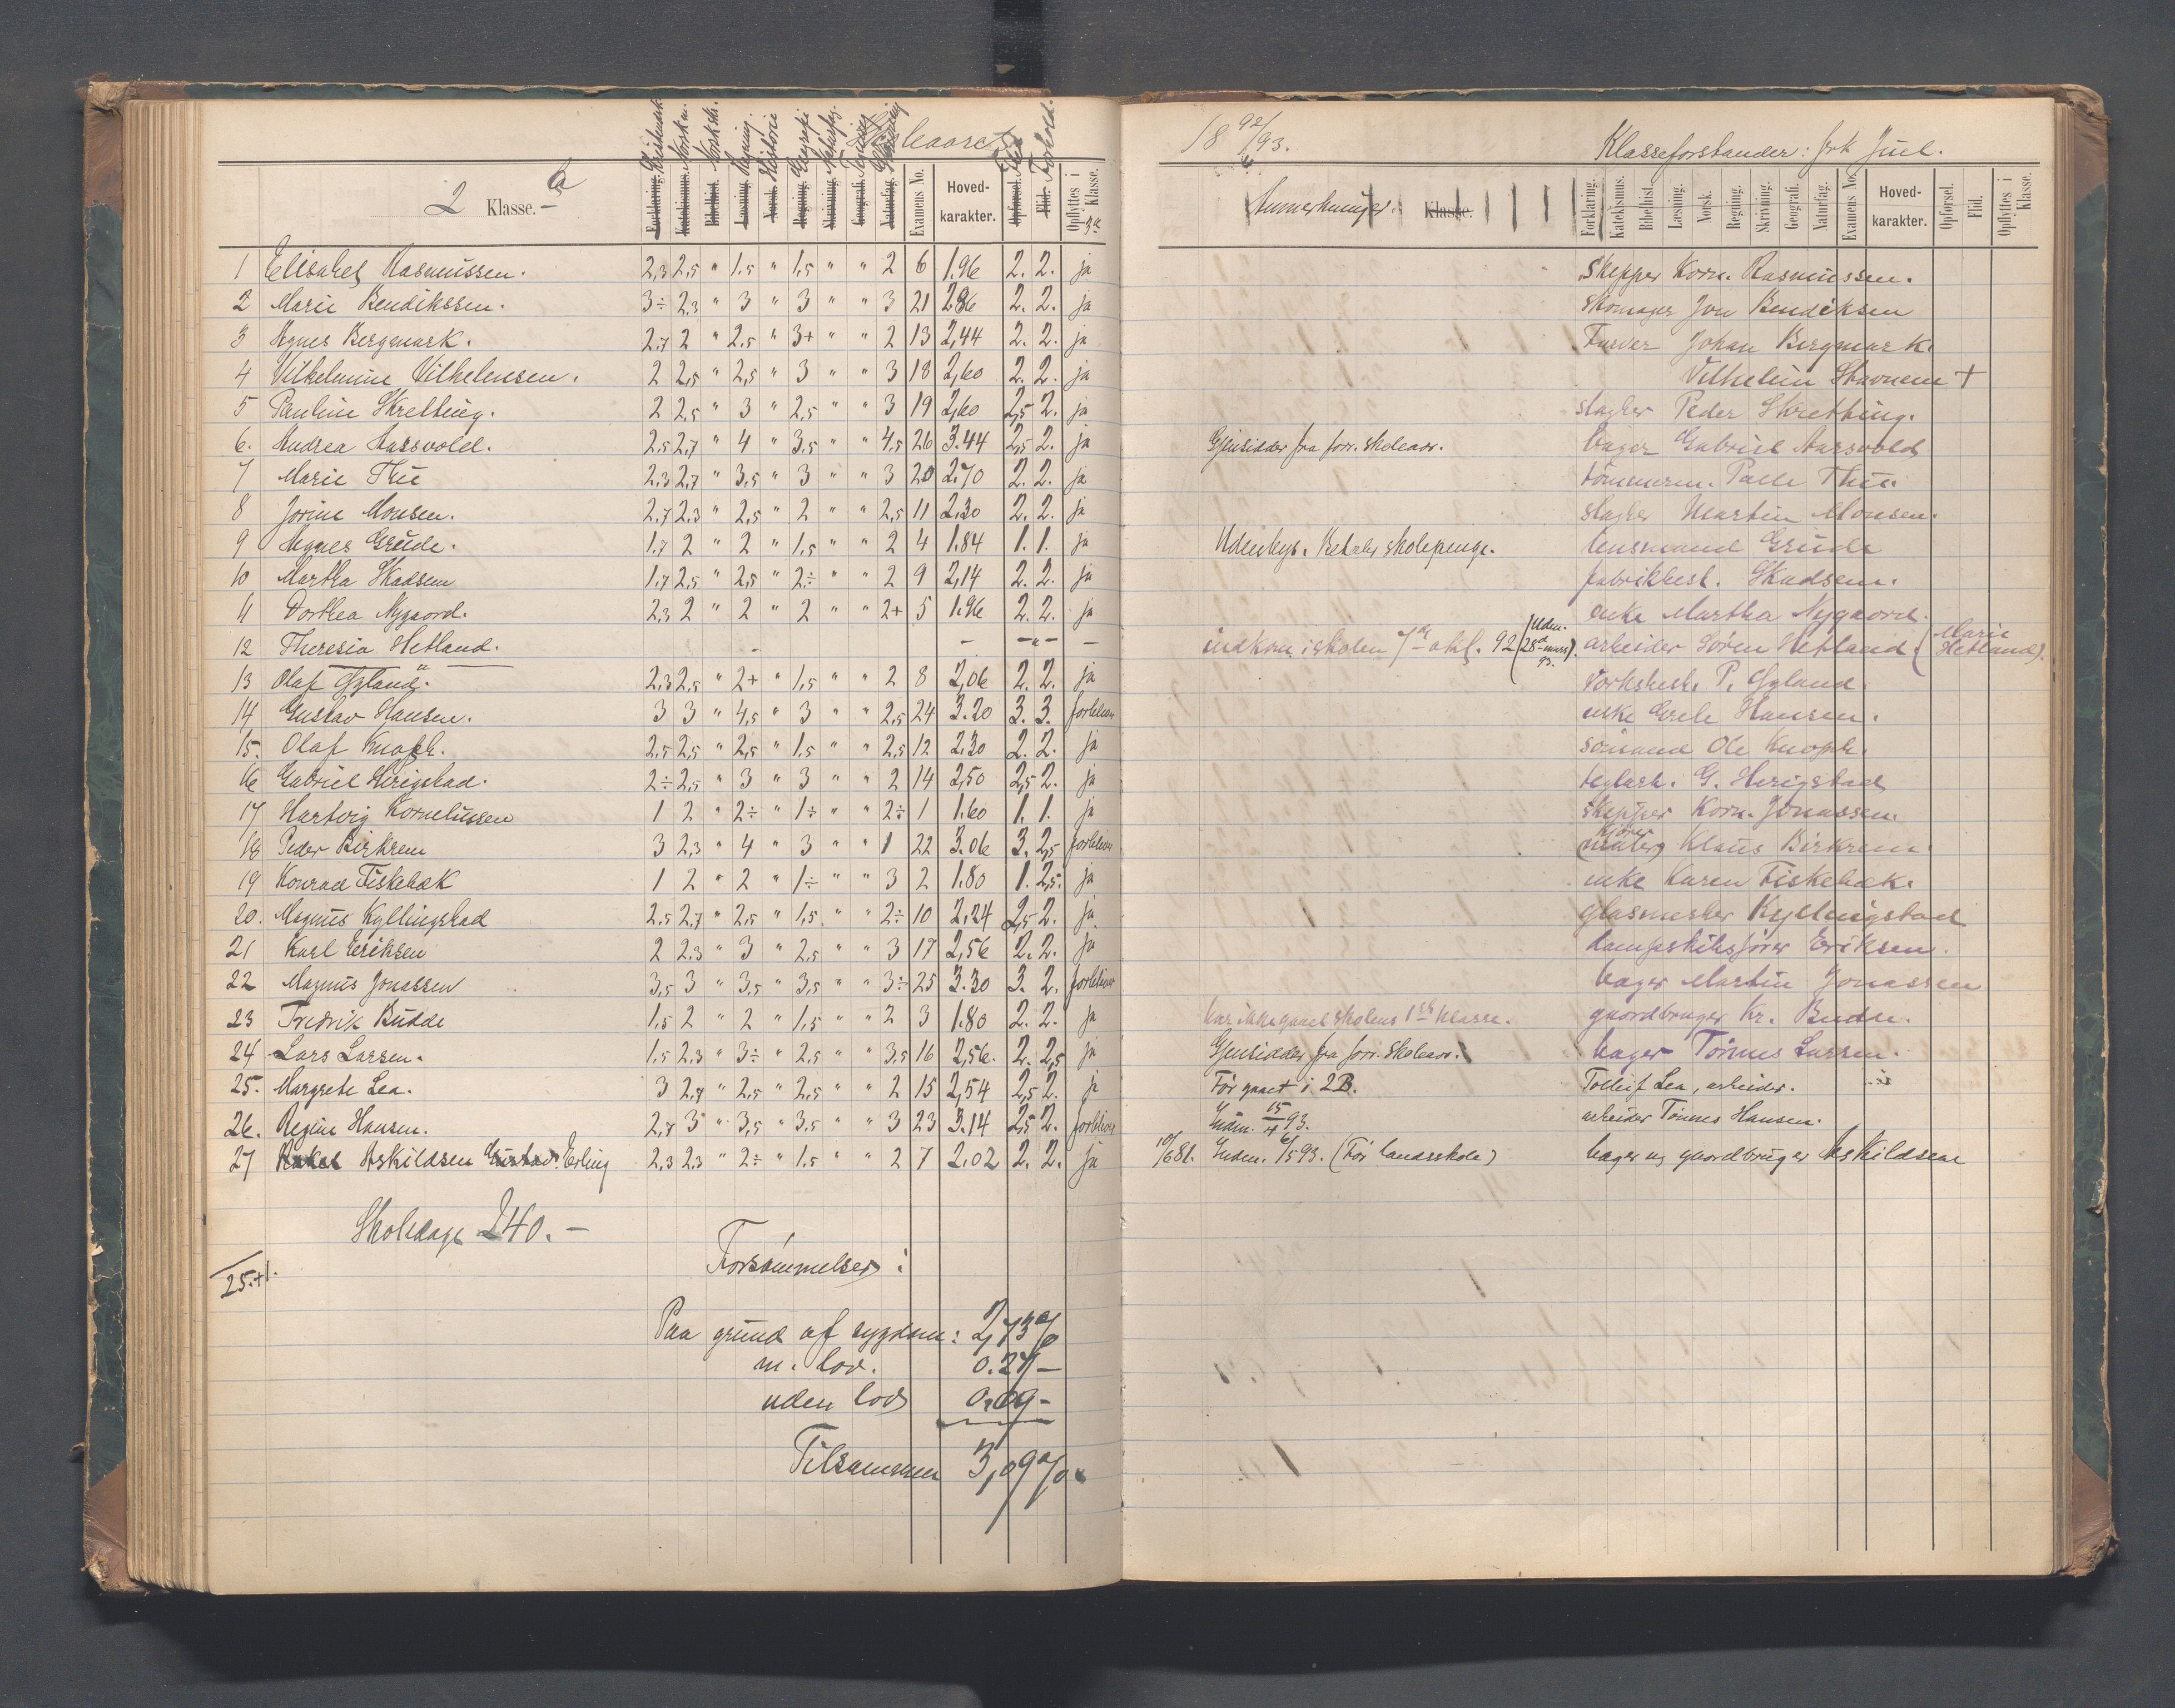 Skoleaaret 18 92/93.
Klasseforstander: frk Juel.
2 Klasse. b
Forklaring. Katekismus. Bibelhist. Læsning. Norsk. Regning. Skrivning. Geografi. Naturfag. Examens No. Hoved-karakter. Opførsel. Flid. Opflyttes i Klasse.
Kristendk. Norsk m. Norsk sk. Regning. Historie Geografi Naturfag. Tegning Skrivning Flid Forhold.
Anmerkninger. Klasse.
Forklaring. Katekismus. Bibelhist. Læsning. Norsk. Regning. Skrivning. Geografi. Naturfag. Examens No. Hoved-karakter. Opførsel. Flid. Opflyttes i Klasse.
1 Elisabet Rasmussen. 2,3 2,5 " 1,5 " 1,5 " " 2 6 1.96 2. 2. ja Skipper Korn. Rasmussen.
2 Marie Bendikssen. 3÷ 2,3 " 3 " 3 " " 3 21 2.86 2. 2. ja Skomager Jon Bendiksen
3 Agnes Bergmark. 2,7 2 " 2,5 " 3+ " " 2 13 2,44 2. 2. ja Farver Johan Bergmark.
4 Vilhelmine Vilhelmsen. 2 2,5 " 2,5 " 3 " " 3 18 2,60 2. 2. ja Vilhelm Stavnem +
5 Pauline Skretting. 2 2,5 " 3 " 2,5 " " 3 19 2,60 2,5 2. ja slagter Peder Skretting.
6. Andrea Aarsvold. 2,5 2,7 " 4 " 3,5 " " 4,5 26 3.44 2,5 2. ja Gjensidder fra forr. skoleaar. bager Gabriel Aarsvold
7 Marie Thu 2,3 2,7 " 3,5 " 3 " " 3 20 2.70 2. 2. ja tömmerm. Palle Thu.
8 Jorine Monsen. 2,7 2,3 " 2,5 " 2 " " 2,5 11 2.30 2. 2. ja slagter Martin Monsen.
9 Agnes Grude. 1,7 2 " 2 " 1,5 " " 2 4 1.84 1. 1. ja Udenbys. Betaler skolepenge. lensmand Grude
10 Martha Skadsem 1,7 2,5 " 2,5 " 2÷ " " 2 9 2,14 2. 2. ja fabrikbest. Skadsem.
11 Dorthea Nygaard. 2,3 2 " 2 " 2 " " 2+ 5 1.96 2. 2. ja enke Martha Nygaard.
12 Theresia Hetland. - - - " - - indkom i skolen 7de okt. 92 (Udm. 28d mars 93). arbeider Sören Hetland. (Marie Hetland).
13 Olaf Gyland. 2,3 2,5 " 2+ " 1,5 " " 2 8 2,06 2. 2. ja Værkstest. P. Gyland.
14 Gustav Hansen. 3 3 " 4,5 " 3 " " 2,5 24 3.20 3. 3. forbliver enke Grete Hansen.
15. Olaf Knoph. 2,5 2,5 " 2,5 " 1,5 " " 2,5 12 2.30 2. 2. ja sömand Ole Knoph.
16 Gabriel Herigstad. 2÷ 2,5 " 3 " 3 " " 2 14 2,50 2,5 2. ja G. Herigstad
17 Hartvig Kornelussen 1 2 " 2÷ " 1÷ " " 2÷ 1 1.60 1. 1. ja Skipper Korn. Jonassen.
18 Peder Birkrem 3 2,3 " 4 " 3 " " 1 22 3.06 3. 2,5 forbliver Klaus Birkrem.
19 Konrad Fiskebæk 1 2 " 2 " 1÷ " " 3 2 1.80 1. 2,5. ja enke Karen Fiskebæk.
20. Magnus Kyllingstad 2,5 2,7 " 2,5 " 1,5 " " 2÷ 10 2,24 2,5 2. ja glasmester Kyllingstad
21 Karl Eriksen 2 2.3 " 3 " 2,5 " " 3 17 2,56 2. 2. ja dampskibsförer Eriksen.
22 Magnus Jonassen 3,5 3 " 3,5 " 3,5 " " 3÷ 25 3.30 3. 2. forbliver bager Martin Jonassen
23 Fredrik Budde 1,5 2 " 2 " 1,5 " " 2 3 1.80 2. 2. ja har ikke gaaet skolens 1ste klasse. gaardbruger Kr. Budde.
24 Lars Larsen. 1,5 2,3 " 3÷ " 2,5 " " 3,5 16 2,56. 2. 2,5 ja Gjensidder fra forr. skoleaar. bager Tönnes Larsen.
25. Margrete Lea. 3 2,7 " 2,5 " 2,5 " " 2 15 2,54 2,5 2. ja Før gaaet i 2B. Tolleif Lea, arbeider.
26. Regine Hansen. 2,7 3 " 3,5 " 3,5 " " 3 23 3.14 2,5 2. forbliver Indm. 15/4 93. arbeider Tönnes Hansen.
27 Askildsen Gustav. Erling 2,3 2,3 " 2÷ " 1,5 " " 2 7 2.02 2. 2. ja 10/6 81. Indm. 6/5 93. (Før landsskole) bager og gaardbruger Askildsen
Skoledage 240. -
25+1.
Forsömmelser:
Paa grund af sygdom: 2,73 %
m. lov. 0.27 -
uden lov 0,09 -
Tilsammen 3,09 %.